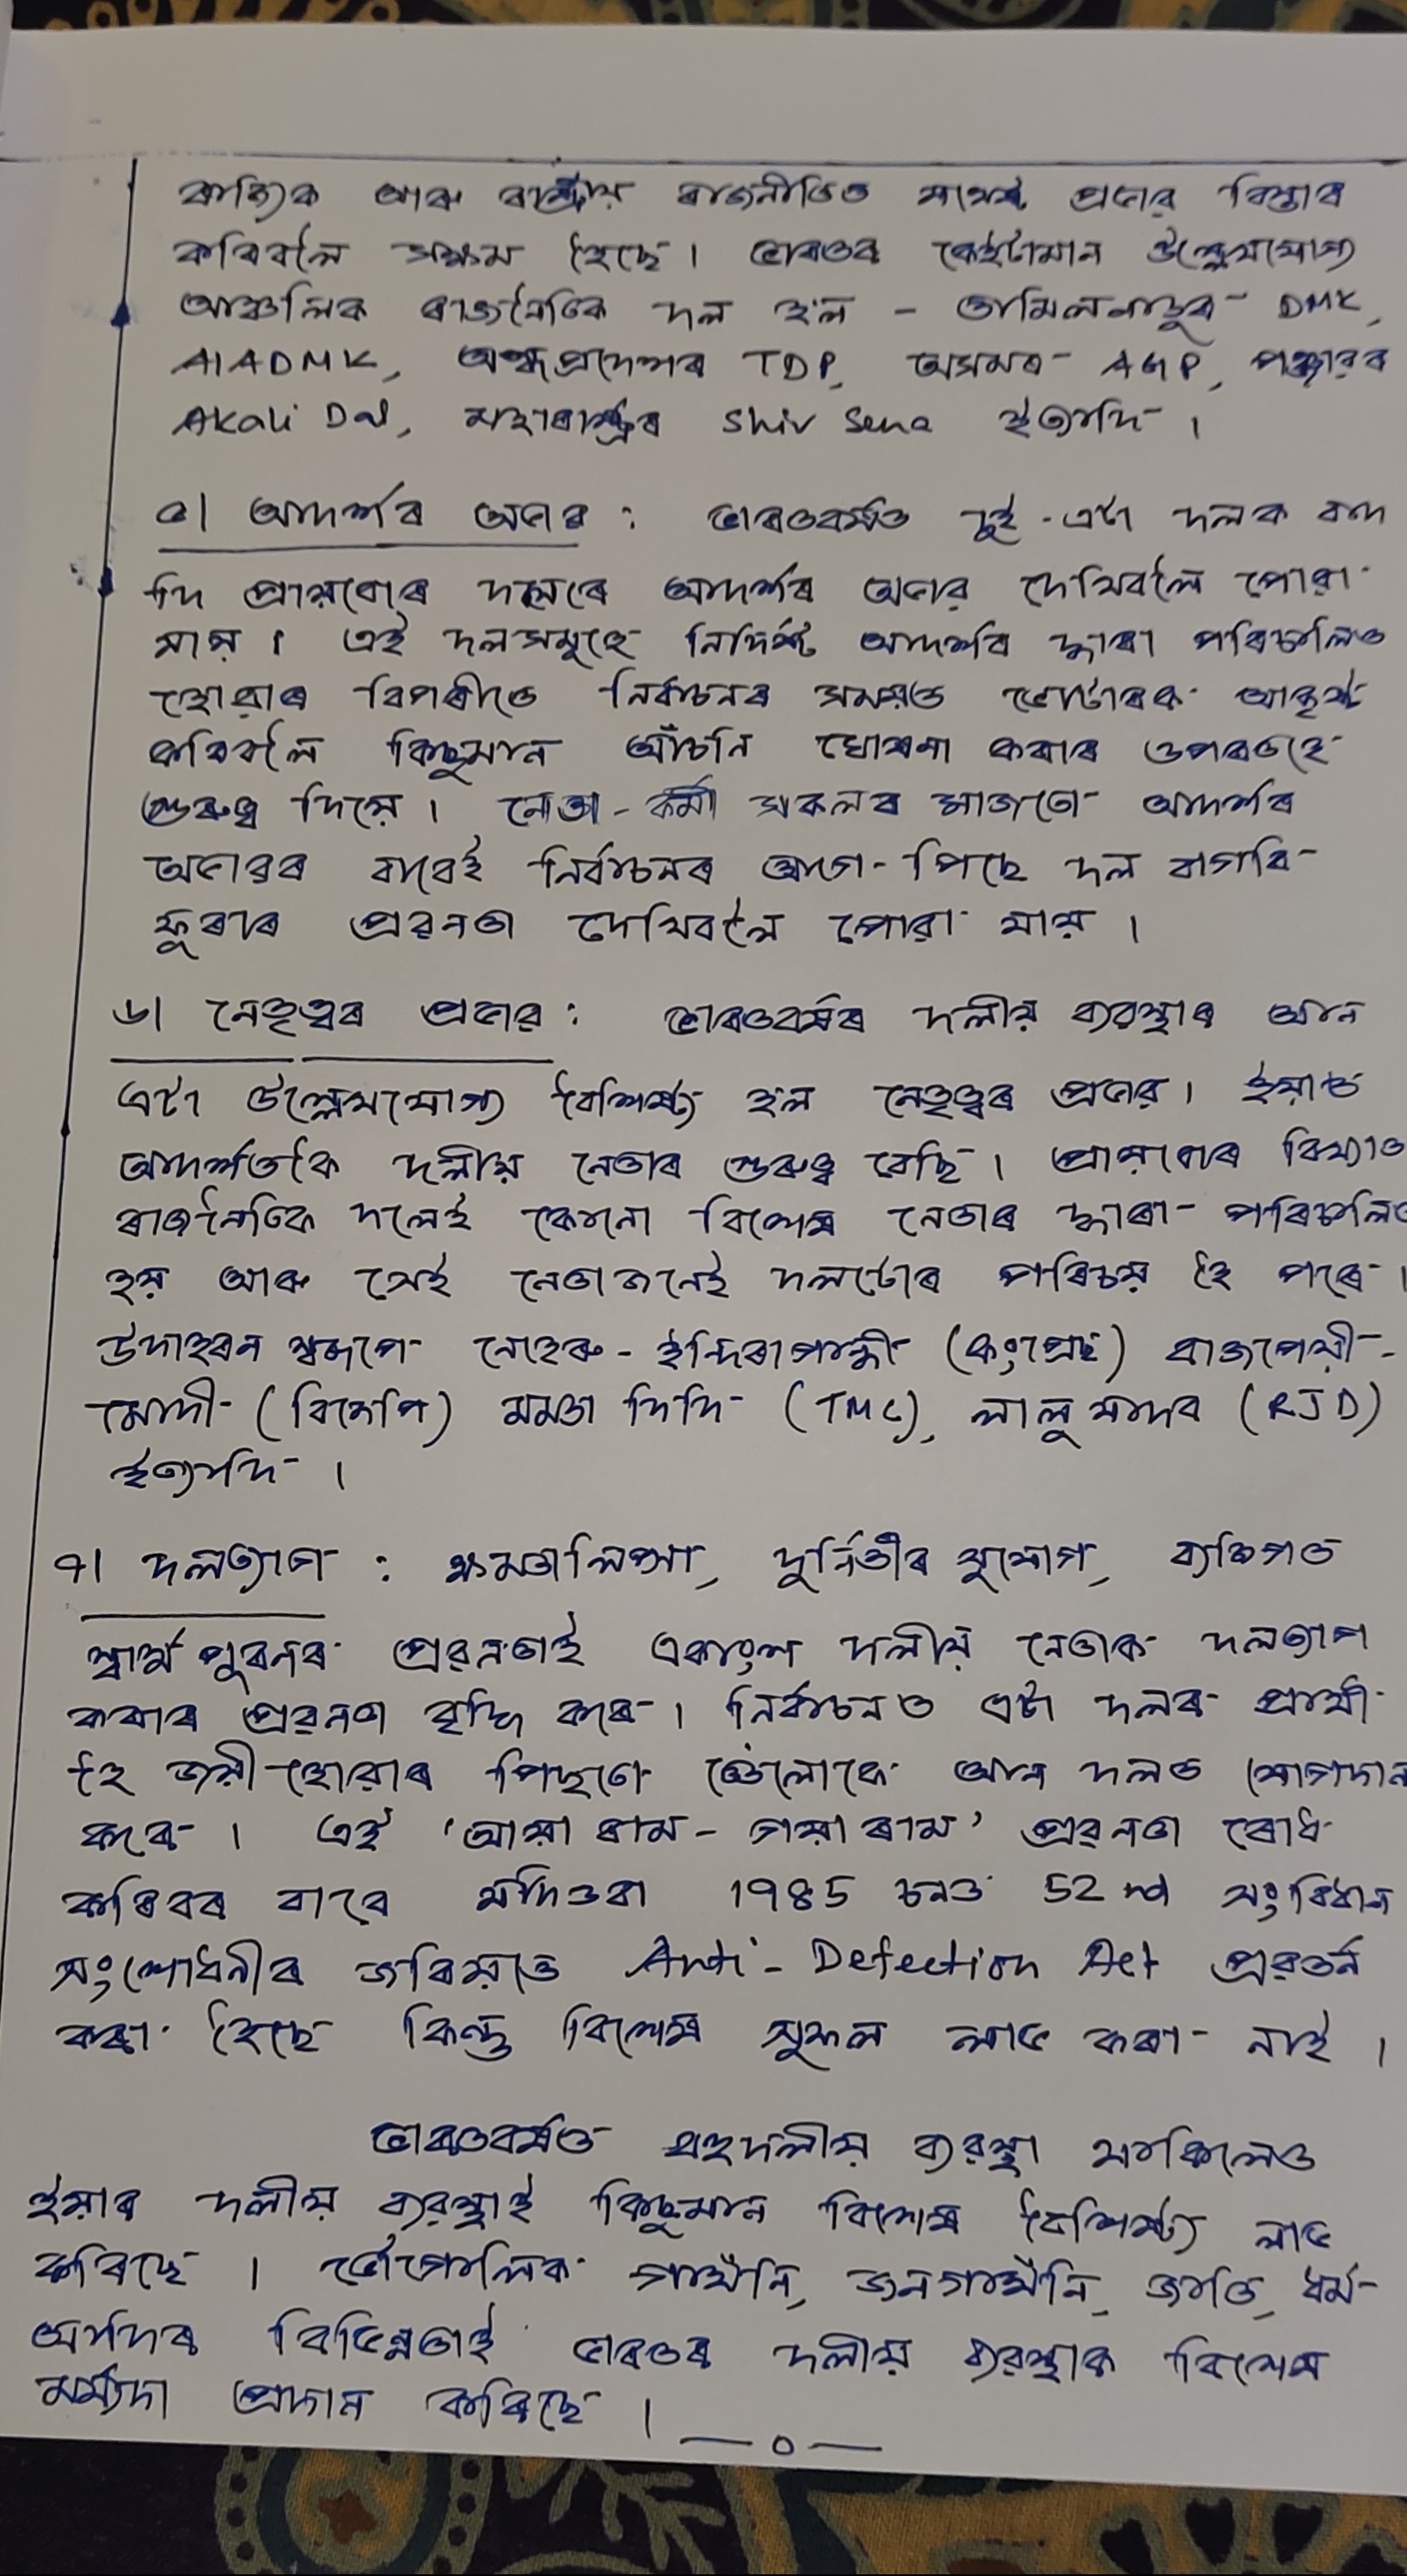 ৰাজ্যিক আৰু ৰাষ্ট্ৰীয় ৰাজনীতিত যথেষ্ট প্ৰভাৱ বিস্তাৰ
কৰিবলৈ সক্ষম হৈছে । ভাৰতৰ কেইটামান উল্লেখযোগ্য
আঞ্চলিক ৰাজনৈতিক দল হ'ল - তামিলনাডুৰ- DMK,
AIADMK, অন্ধ্ৰপ্ৰদেশৰ TDP, অসমৰ- AGP, পঞ্জাৱৰ
Akali Dal, মহাৰাষ্ট্ৰৰ Shiv Sena ইত্যাদি ।
৫। আদৰ্শৰ অভাৱ : ভাৰতবৰ্ষত দুই-এটা দলক বাদ
দি প্ৰায়বোৰ দলৰে আদৰ্শৰ অভাৱ দেখিবলৈ পোৱা
যায় । এই দলসমূহে নিৰ্দিষ্ট আদৰ্শৰ দ্বাৰা পৰিচালিত
হোৱাৰ বিপৰীতে নিৰ্বাচনৰ সময়ত ভোটাৰক আকৃষ্ট
কৰিবলৈ কিছুমান আঁচনি ঘোষনা কৰাৰ ওপৰতহে
গুৰুত্ব দিয়ে । নেতা-কৰ্মী সকলৰ মাজতো আদৰ্শৰ
অভাৱৰ বাবেই নিৰ্বাচনৰ আগে-পিছে দল বাগৰি-
ফুৰাৰ প্ৰৱনতা দেখিবলৈ পোৱা যায় ।
৬। নেতৃত্বৰ প্ৰভাৱ : ভাৰতবৰ্ষৰ দলীয় ব্যৱস্থাৰ আন
এটা উল্লেখযোগ্য বৈশিষ্ট্য হ'ল নেতৃত্বৰ প্ৰভাৱ । ইয়াত
আদৰ্শতকৈ দলীয় নেতাৰ গুৰুত্ব বেছি । প্ৰায়বোৰ বিখ্যাত
ৰাজনৈতিক দলেই কোনো বিশেষ নেতাৰ দ্বাৰা পৰিচালিত
হয় আৰু সেই নেতাজনেই দলটোৰ পৰিচয় হৈ পৰে ।
উদাহৰন স্বৰূপে নেহেৰু - ইন্দিৰাগান্ধী (কংগ্ৰেছ) বাজপেয়ী-
মোদী (বিজেপি) মমতা দিদি (TMC), লালু যাদৱ (RJD)
ইত্যাদি ।
৭। দলত্যাগ : ক্ষমতালিপ্সা, দুৰ্নিতীৰ সুযোগ, ব্যক্তিগত
স্বাৰ্থ পুৰনৰ প্ৰৱনতাই একাংশ দলীয় নেতাক দলত্যাগ
কৰাৰ প্ৰৱনতা বৃদ্ধি কৰে । নিৰ্বাচনত এটা দলৰ প্ৰাৰ্থী
হৈ জয়ী হোৱাৰ পিছতো তেওঁলোকে আন দলত যোগদান
কৰে । এই 'আয়া ৰাম - গয়া ৰাম' প্ৰৱনতা ৰোধ
কৰিবৰ বাবে যদিওবা 1985 চনত 52 nd সংবিধান
সংশোধনীৰ জৰিয়তে Anti-Defection Act প্ৰৱৰ্তন
কৰা হৈছে কিন্তু বিশেষ সুফল লাভ কৰা নাই ।
ভাৰতবৰ্ষত বহুদলীয় ব্যৱস্থা থাকিলেও
ইয়াৰ দলীয় ব্যৱস্থাই কিছুমান বিশেষ বৈশিষ্ট্য লাভ
কৰিছে । ভৌগোলিক গাথঁনি, জনগাথঁনি, জাতি, ধৰ্ম-
আদিৰ বিভিন্নতাই ভাৰতৰ দলীয় ব্যৱস্থাক বিশেষ
মৰ্য্যদা প্ৰদান কৰিছে ।
— o —